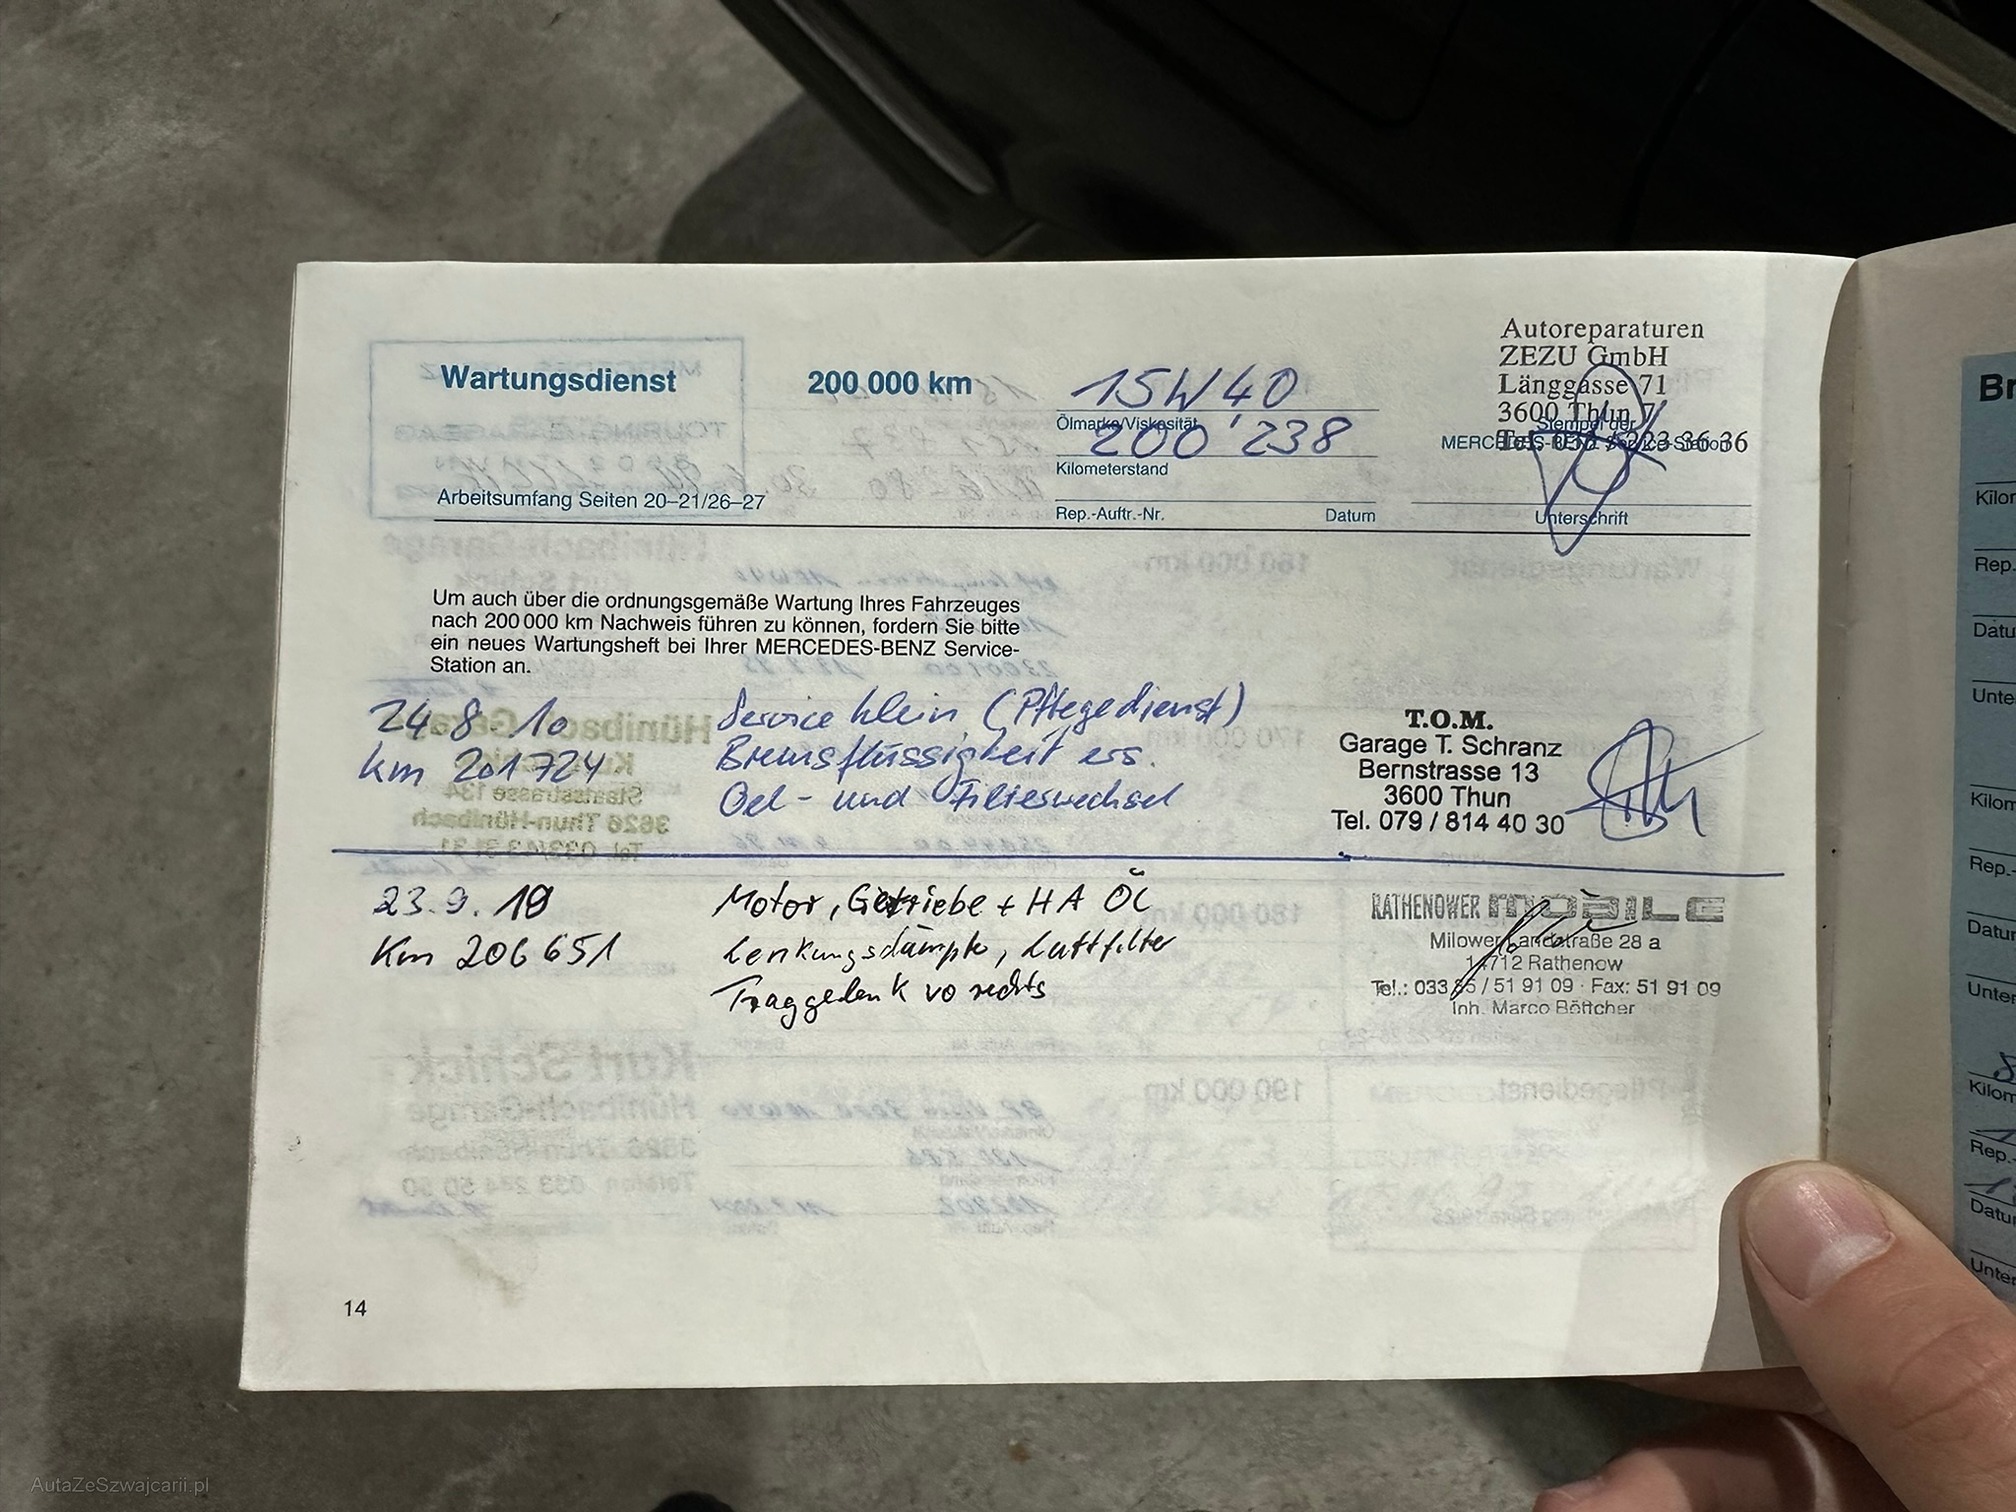 Autoreparaturen
ZEZU GmbH
Länggasse 71
3600 Thun 7
Tel. 033 / 223 36 36
Wartungsdienst
200 000 km
15W40
Ölmarke/Viskosität
200'238
Kilometerstand
Stempel der
MERCEDES-BENZ Service-Station
Arbeitsumfang Seiten 20–21/26–27
Rep.-Auftr.-Nr.
Datum
Unterschrift
Um auch über die ordnungsgemäße Wartung Ihres Fahrzeuges
nach 200 000 km Nachweis führen zu können, fordern Sie bitte
ein neues Wartungsheft bei Ihrer MERCEDES-BENZ Service-
Station an.
24 8 10
km 201724
Service klein (Pflegedienst)
Bremsflüssigkeit ers.
Oel- und Filterwechsel
T.O.M.
Garage T. Schranz
Bernstrasse 13
3600 Thun
Tel. 079 / 814 40 30
23.9.19
Km 206651
Motor, Getriebe + HA ÖL
Lenkungsdämpfe, Luftfilter
Traggelenk vo rechts
RATHENOWER MOBILE
Milower Landstraße 28 a
14712 Rathenow
Tel.: 033 85 / 51 91 09 · Fax: 51 91 09
Inh. Marco Böttcher
190 000 km
180 000 km
170 000 km
160 000 km
Wartungsdienst
Pflegedienst
Kurt Schick
Hünibach-Garage
3626 Thun-Hünibach
Staatsstrasse 134
14
Br
Kilom
Rep.-
Datu
Unter
AutaZeSzwajcarii.pl